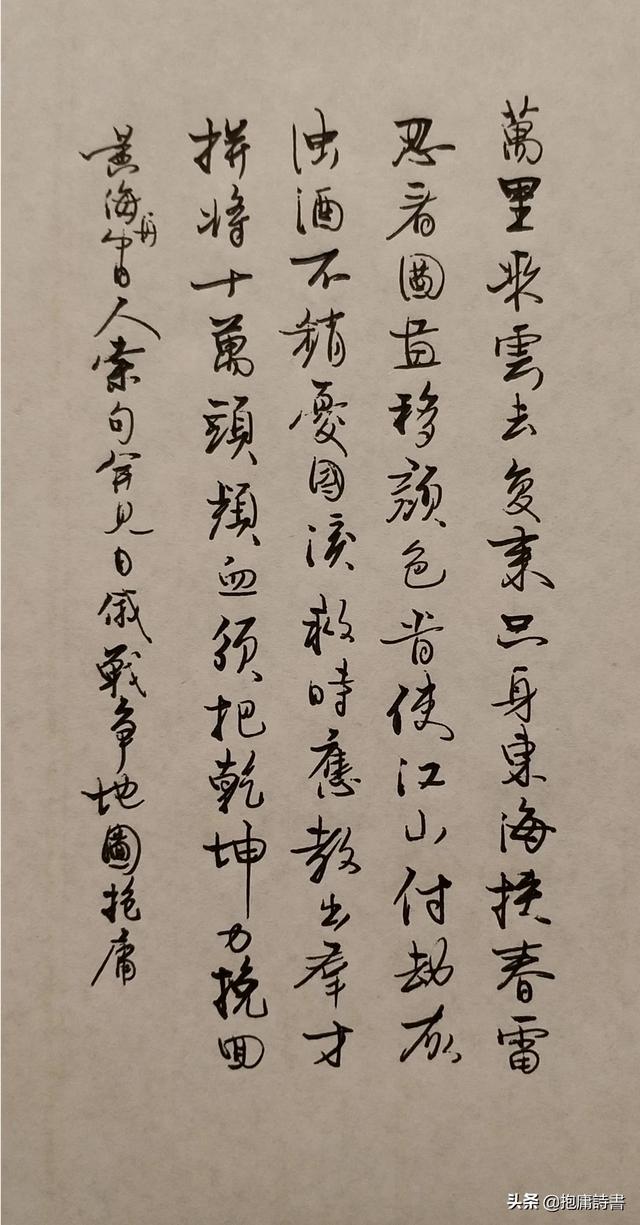 萬里乘雲去复來只身東海挾春雷
忍看圖畫移顏色肯使江山付劫灰
浊酒不銷憂國淚救時應教出羣才
拼將十萬頭顱血須把乾坤力挽回
黃海舟中日人索句并見日俄戰爭地圖抱庸
头条 @抱庸詩書